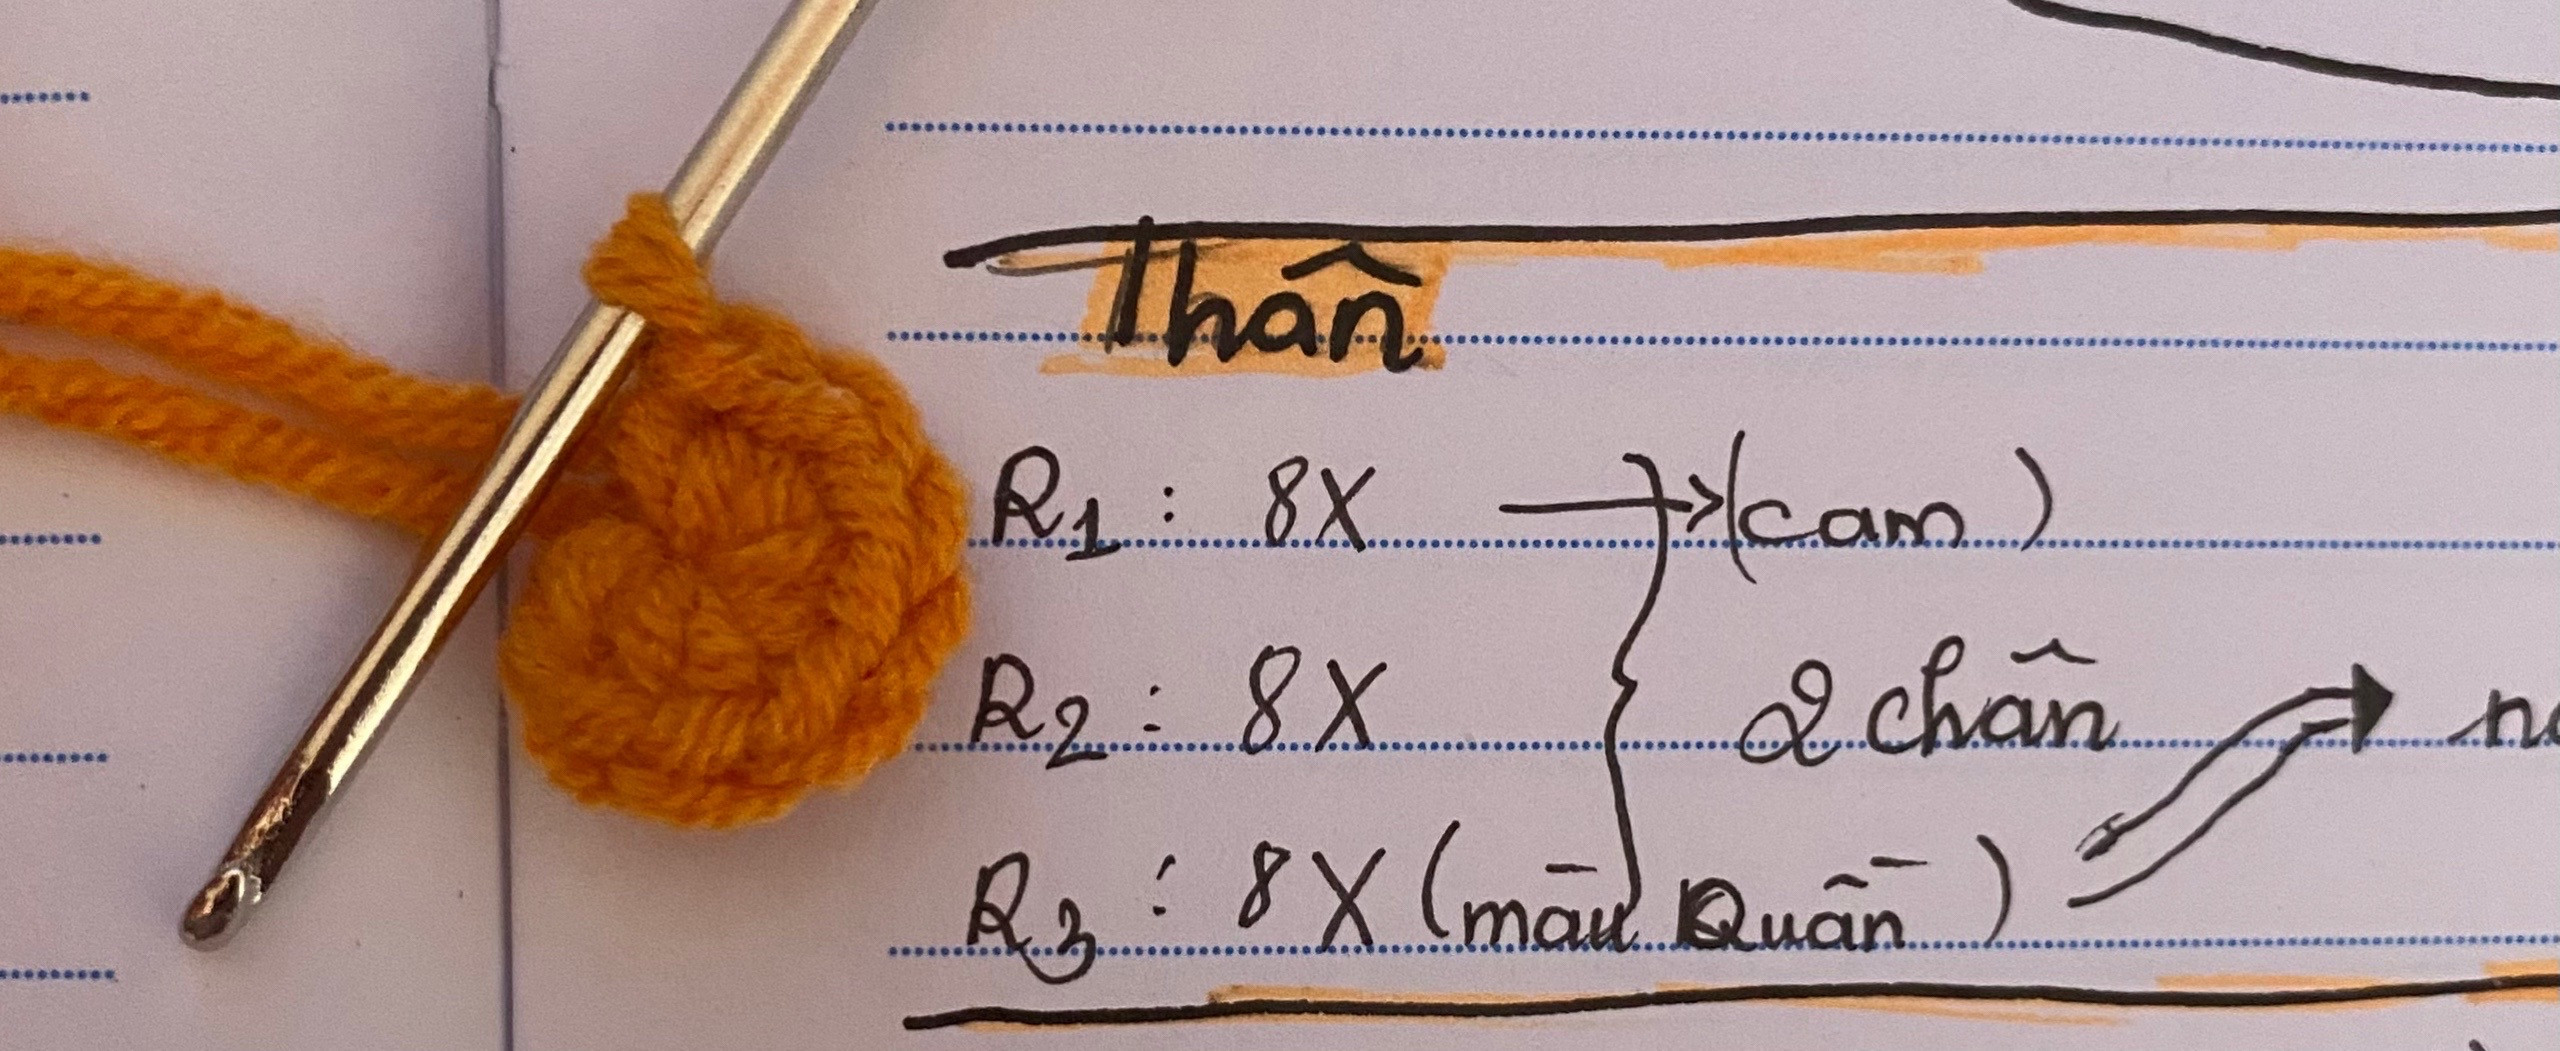 Thân
R1 : 8X → (cam)
R2 : 8X } 2 chân
R3 : 8X (màu Quần)